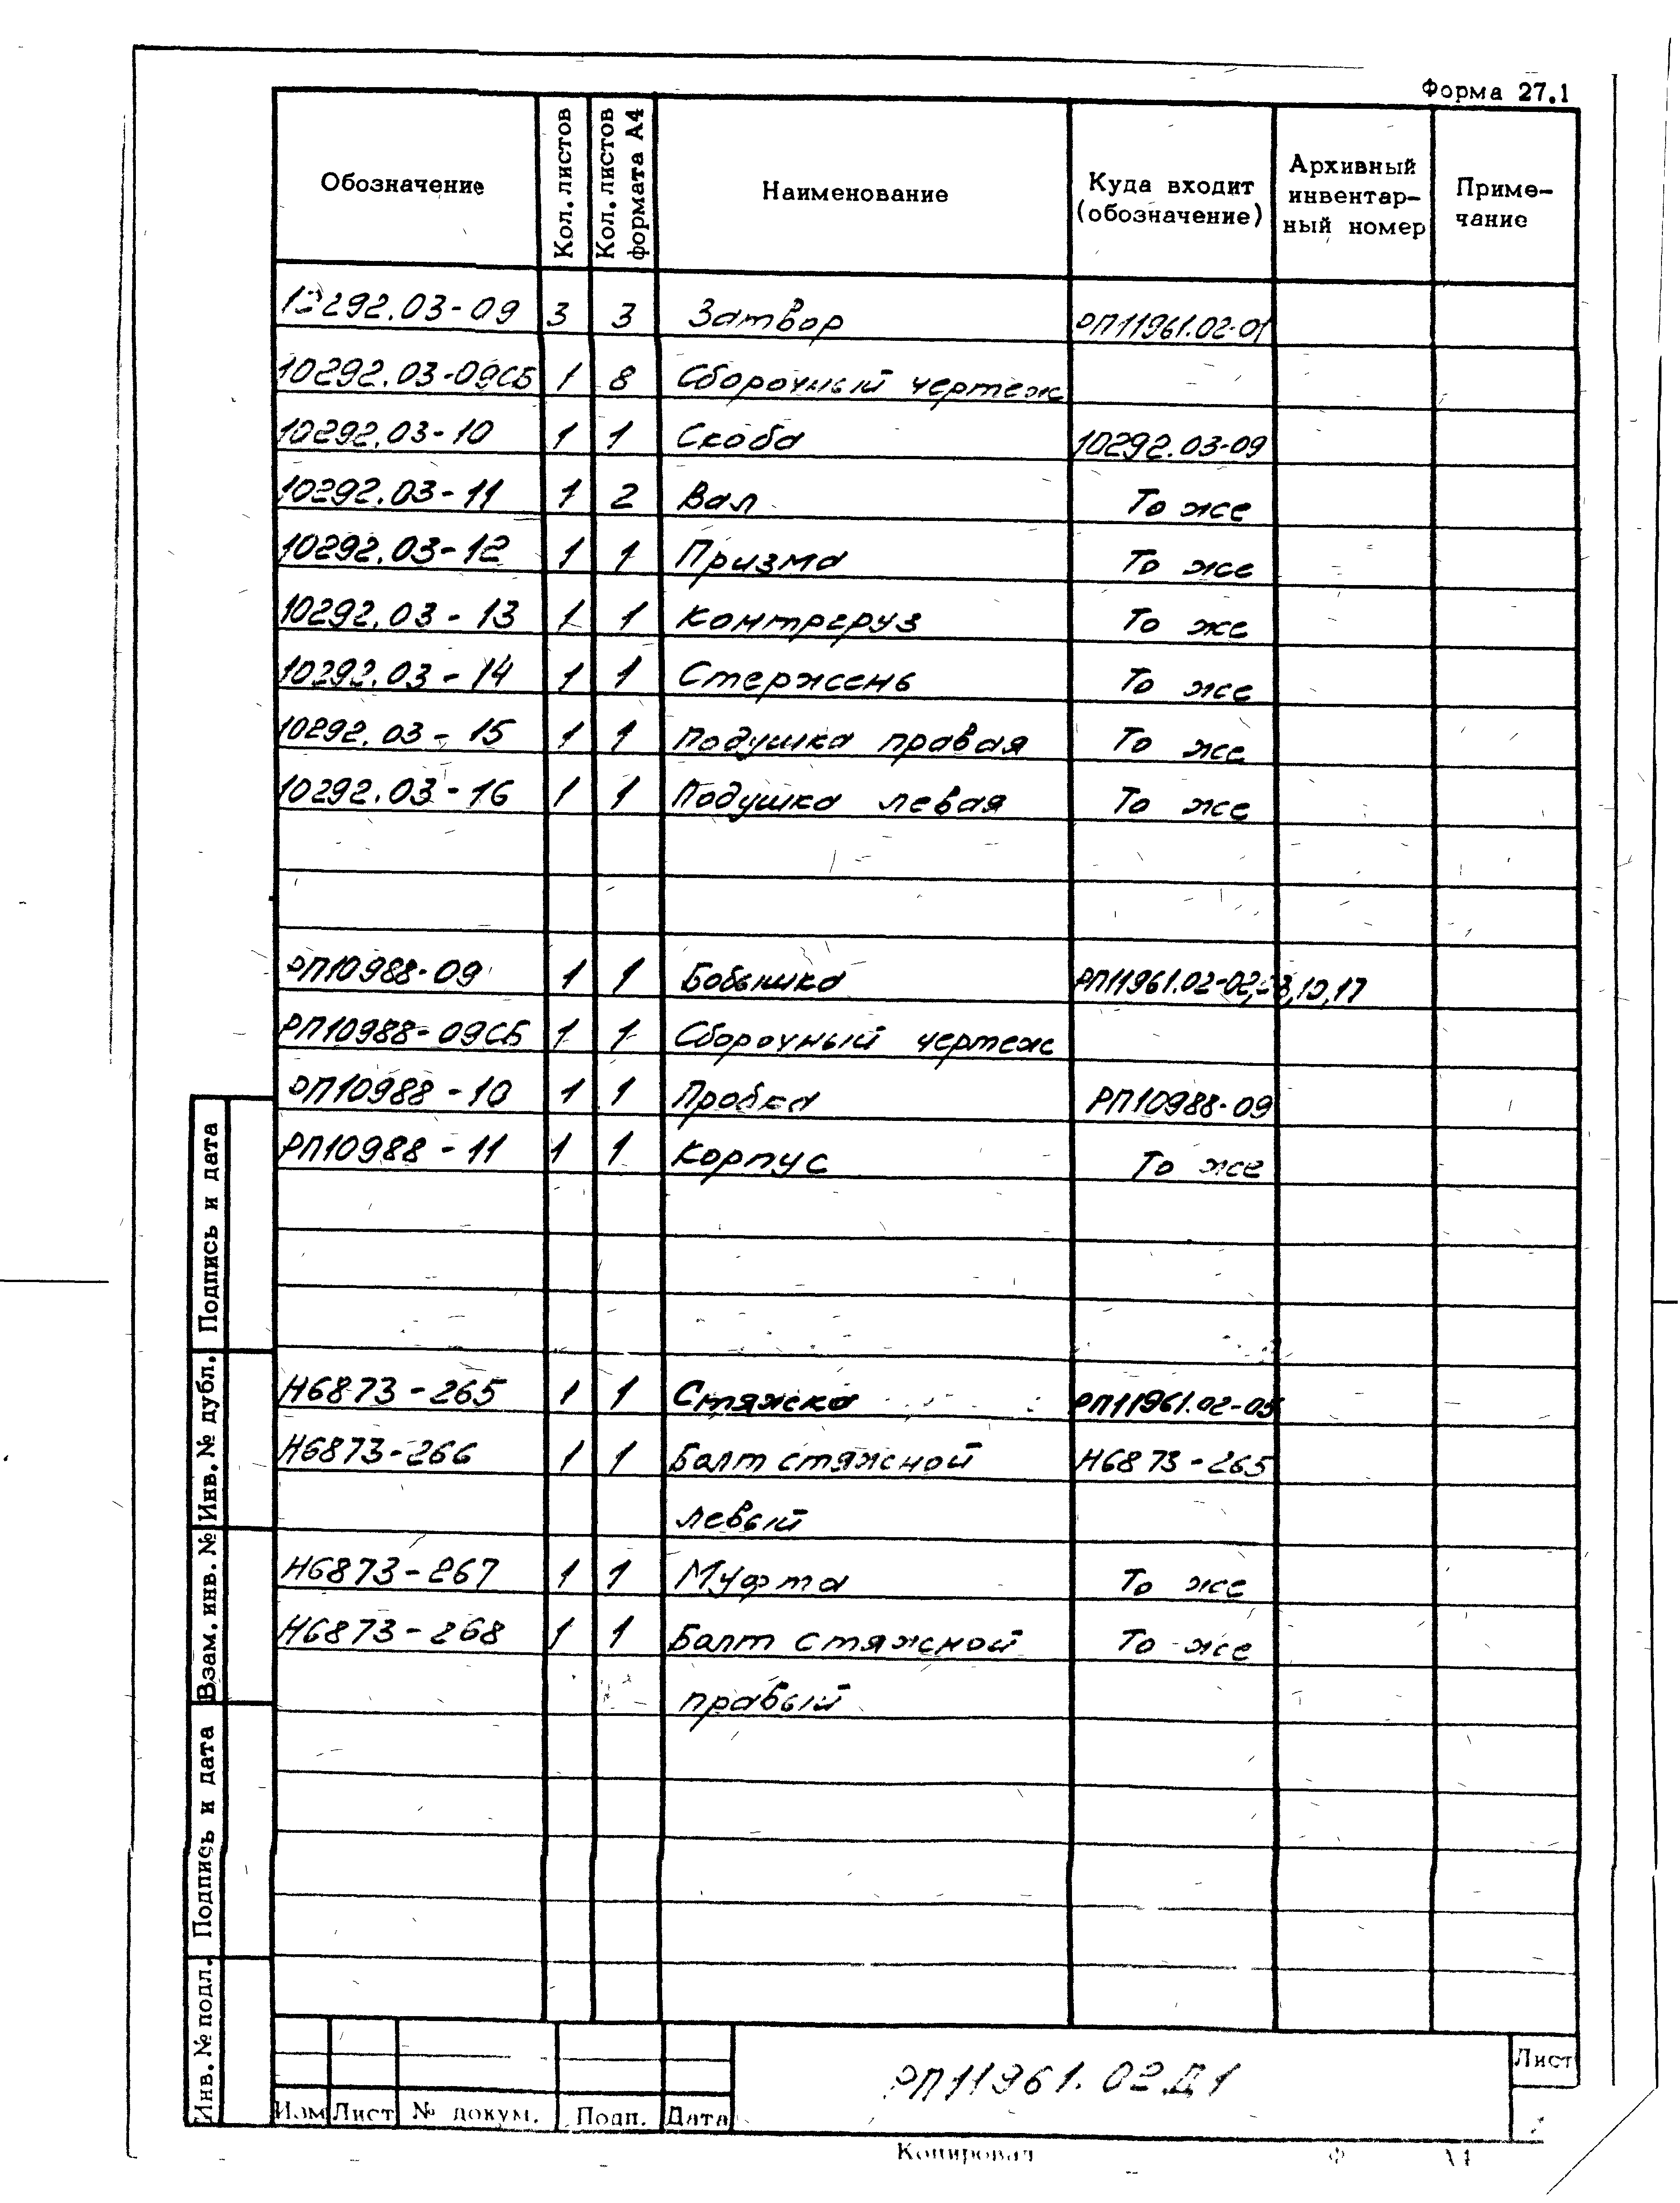 Форма 27.1
Обозначение Кол. листов Кол. листов формата А4 Наименование Куда входит (обозначение) Архивный инвентар-ный номер Приме-чание
10292.03-09 3 3 Затвор РП11961.02-01
10292.03-09СБ 1 8 Сборочный чертеж
10292.03-10 1 1 Скоба 10292.03-09
10292.03-11 1 2 Вал То же
10292.03-12 1 1 Призма То же
10292.03-13 1 1 Контргруз То же
10292.03-14 1 1 Стержень То же
10292.03-15 1 1 Подушка правая То же
10292.03-16 1 1 Подушка левая То же
РП10988-09 1 1 Бобышка
РП10988-09СБ 1 1 Сборочный чертеж
РП10988-10 1 1 Пробка РП10988-09
РП10988-11 1 1 Корпус То же
Н6873-265 1 1 Стяжка РП11961.02-05
Н6873-266 1 1 Балт стяжной Н6873-265
левый
Н6873-267 1 1 Муфта То же
Н6873-268 1 1 Балт стяжной То же
правый
Подпись и дата
Инв. № дубл.
Взам. инв. №
Подпись и дата
Инв. № подл.
Изм Лист № докум. Подп. Дата
РП11961.02Д1
Лист
Копировал Ф А4